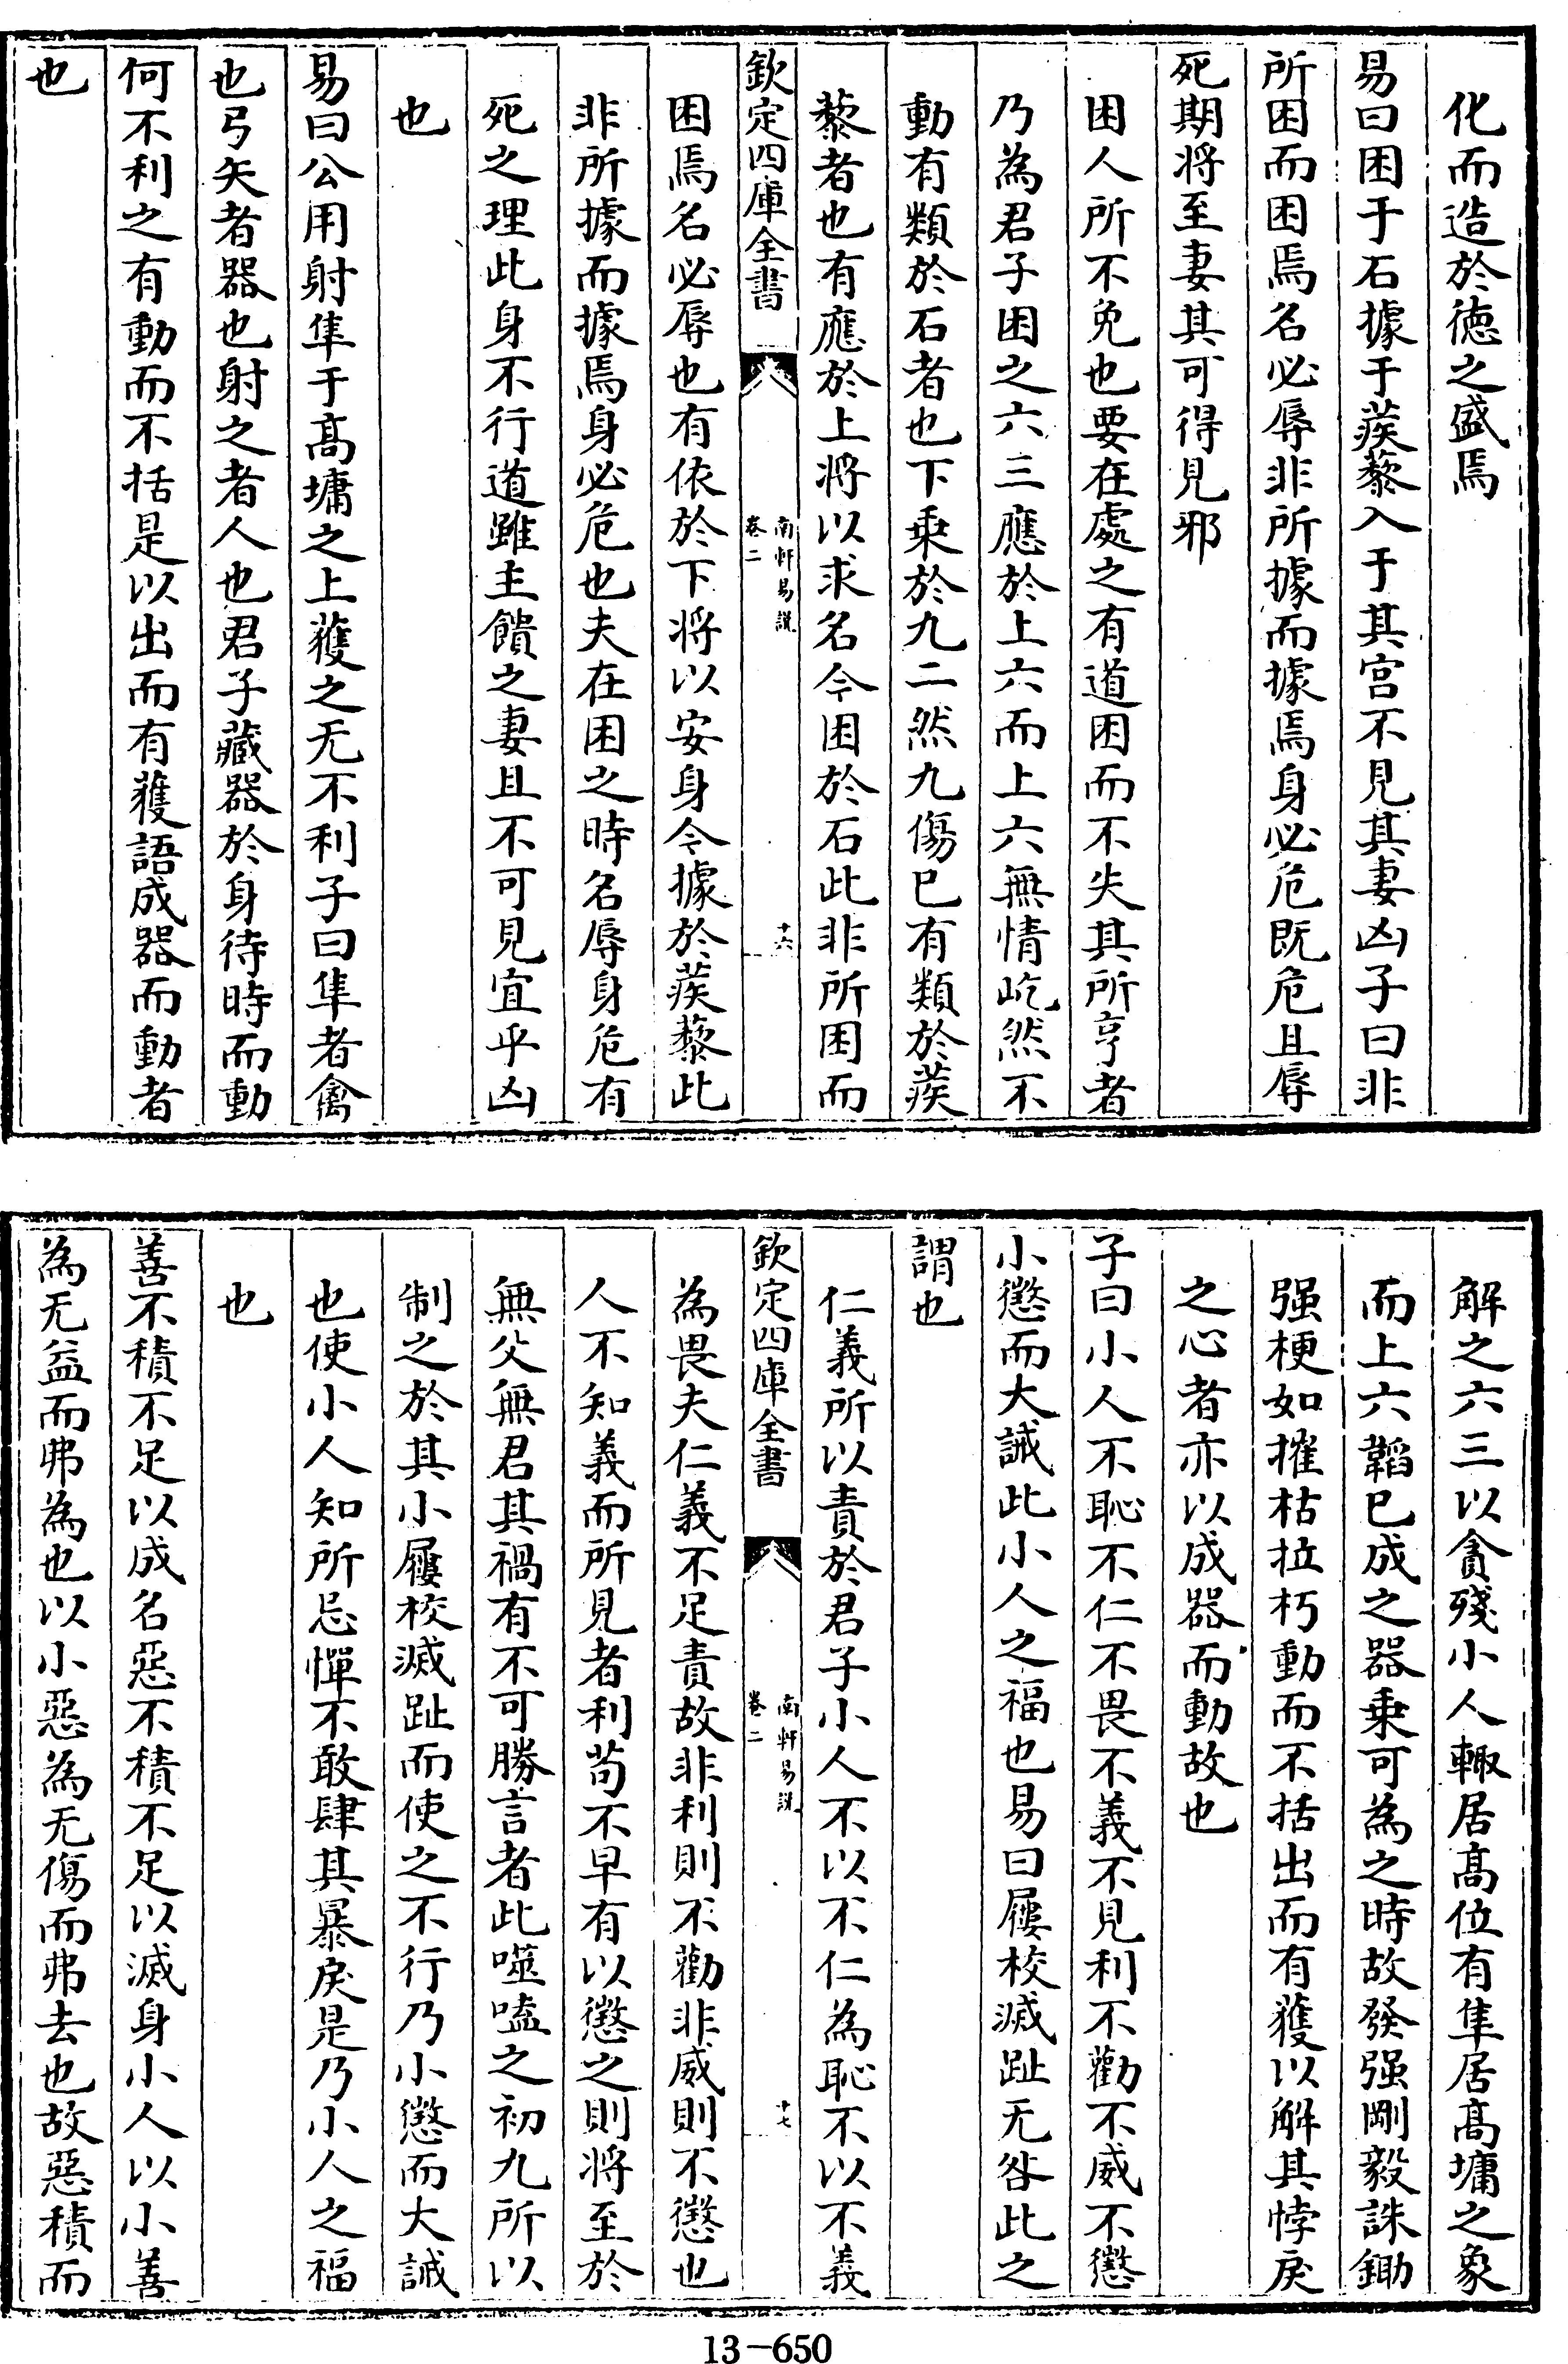 化而造於徳之盛焉
易曰困于石據于蒺藜入于其宫不見其妻凶子曰非
所困而困焉名必辱非所據而據焉身必危既危且辱
死期将至妻其可得見邪
困人所不免也要在處之有道困而不失其所亨者
乃為君子困之六三應於上六而上六無情屹然不
動有類於石者也下乗於九二然九傷已有類於蒺
藜者也有應於上将以求名今困於石此非所困而
欽定四庫全書
南軒易説
卷二
十六
困焉名必辱也有依於下将以安身今據於蒺藜此
非所據而據焉身必危也夫在困之時名辱身危有
死之理此身不行道雖主饋之妻且不可見宜乎凶
也
易曰公用射隼于髙墉之上獲之无不利子曰隼者禽
也弓矢者器也射之者人也君子藏器於身待時而動
何不利之有動而不括是以出而有獲語成器而動者
也
解之六三以貪殘小人輙居髙位有隼居髙墉之象
而上六韜已成之器乗可為之時故發强剛毅誅鋤
强梗如摧枯拉朽動而不括出而有獲以解其悖戾
之心者亦以成器而動故也
子曰小人不恥不仁不畏不義不見利不勸不威不懲
小懲而大誡此小人之福也易曰屨校滅趾无咎此之
謂也
仁義所以責於君子小人不以不仁為恥不以不義
欽定四庫全書
南軒易説
卷二
十七
為畏夫仁義不足責故非利則不勸非威則不懲也
人不知義而所見者利茍不早有以懲之則将至於
無父無君其禍有不可勝言者此噬嗑之初九所以
制之於其小屨校滅趾而使之不行乃小懲而大誡
也使小人知所忌憚不敢肆其暴戾是乃小人之福
也
善不積不足以成名惡不積不足以滅身小人以小善
為无益而弗為也以小惡為无傷而弗去也故惡積而
13-650